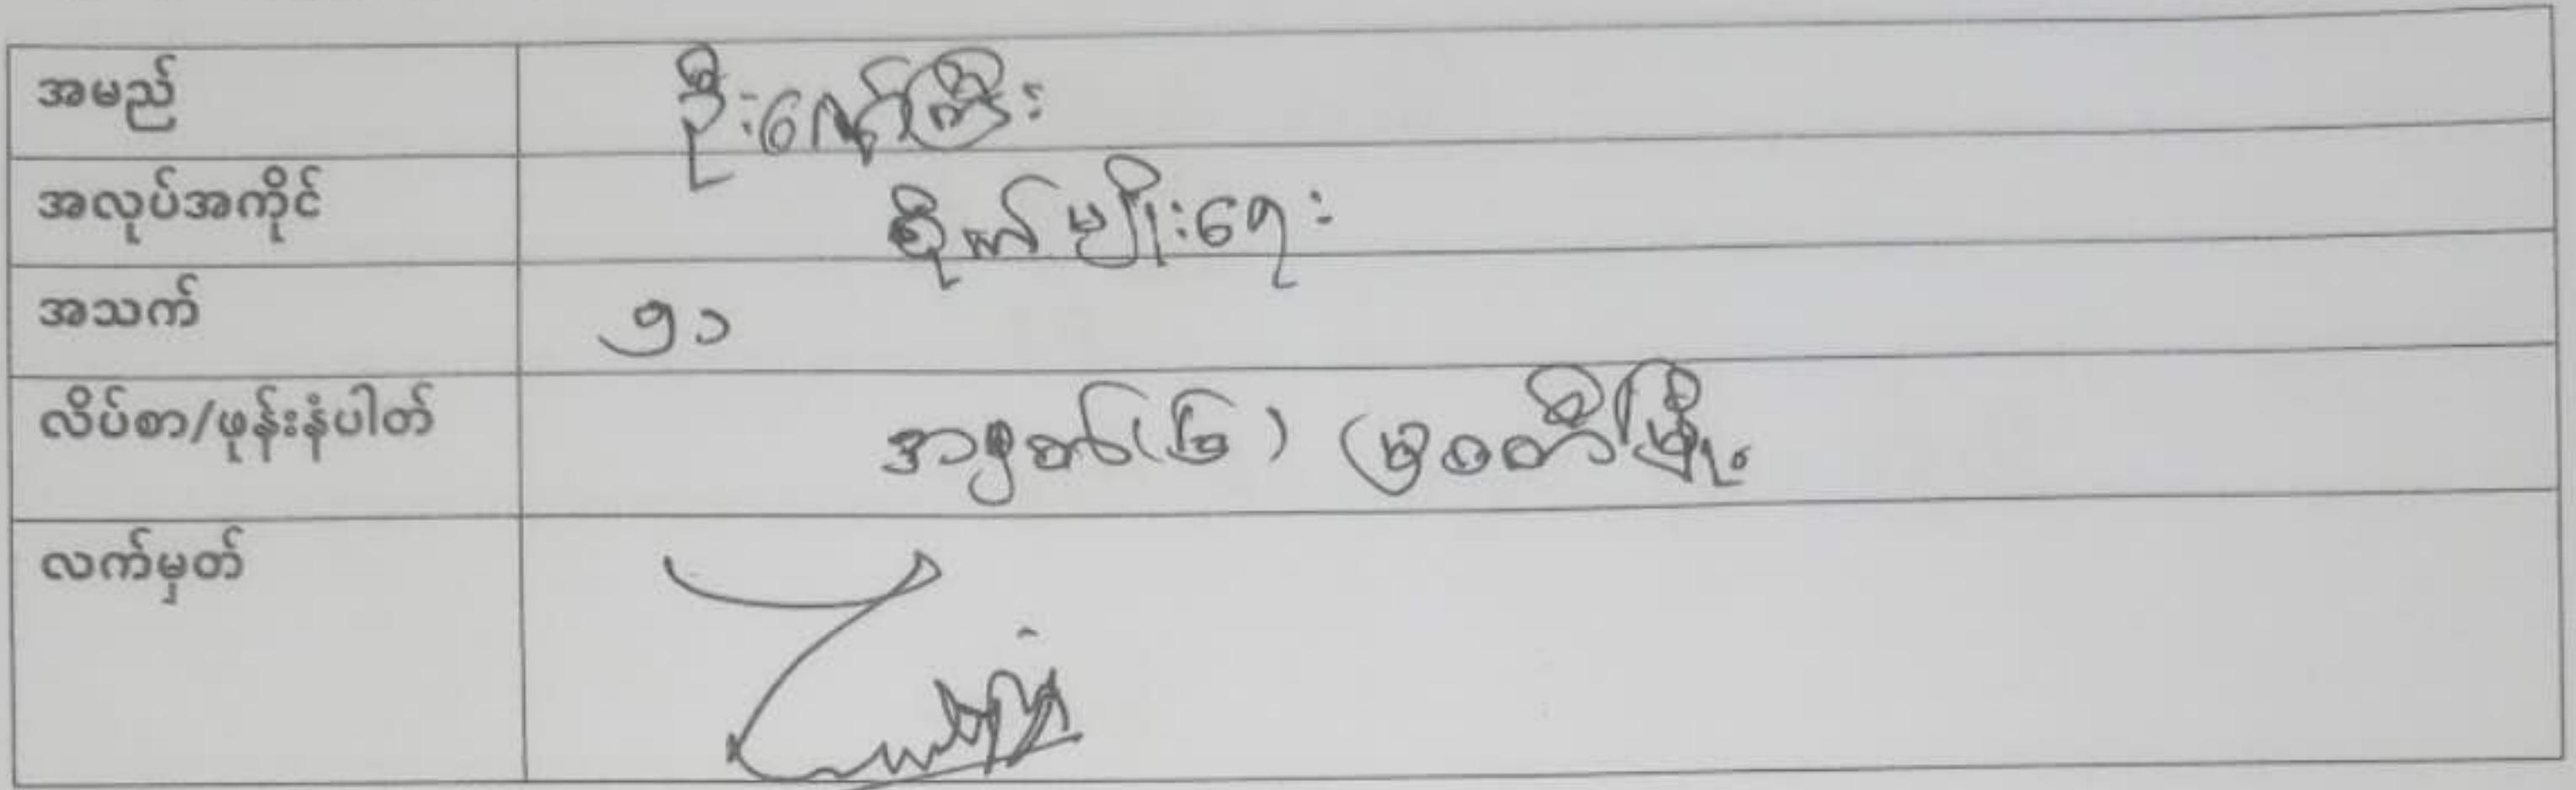 အမည် ဦးကျော်ကြီး
အလုပ်အကိုင် စိုက်ပျိုးရေး
အသက် ၅၁
လိပ်စာ/ဖုန်းနံပါတ် အကွက်(၆) မြဝတီမြို့
လက်မှတ်